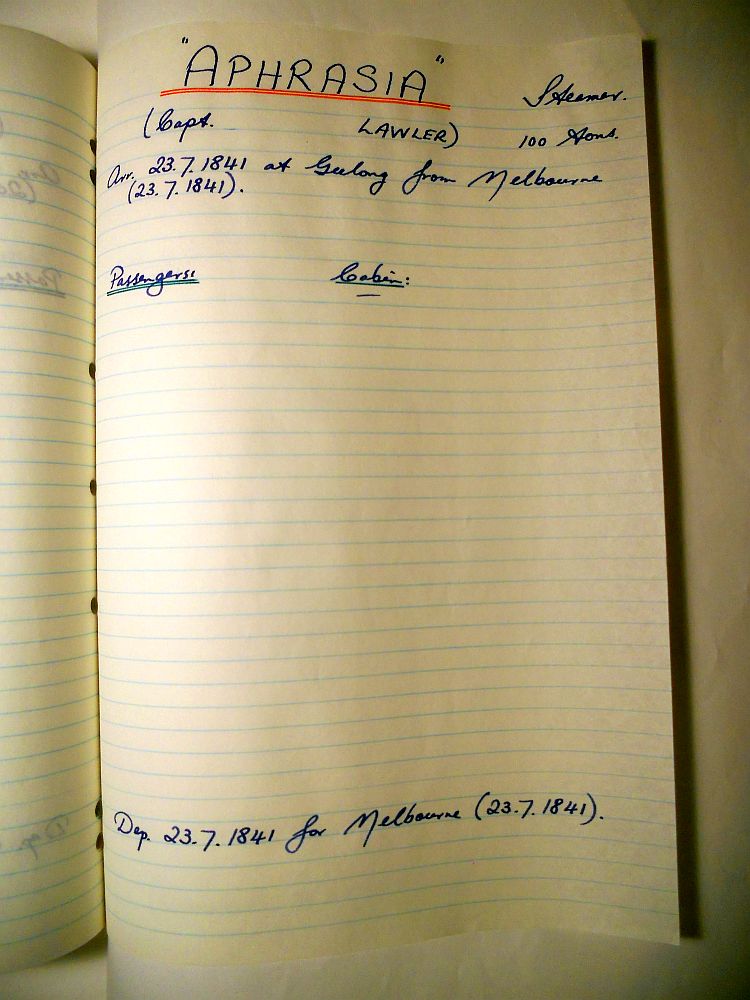 "APHRASIA" Steamer.
(Capt. LAWLER) 100 tons.
Arr. 23.7.1841 at Geelong from Melbourne
(23.7.1841).
Passengers: Cabin:
Dep. 23.7.1841 for Melbourne (23.7.1841).